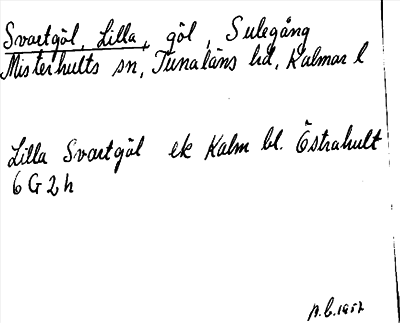 Svartgöl, Lilla, göl, Sulegång
Misterhults sn, Tunaläns hd, Kalmar l
Lilla Svartgöl ek Kalm bl. Östrahult
6G2h
1957